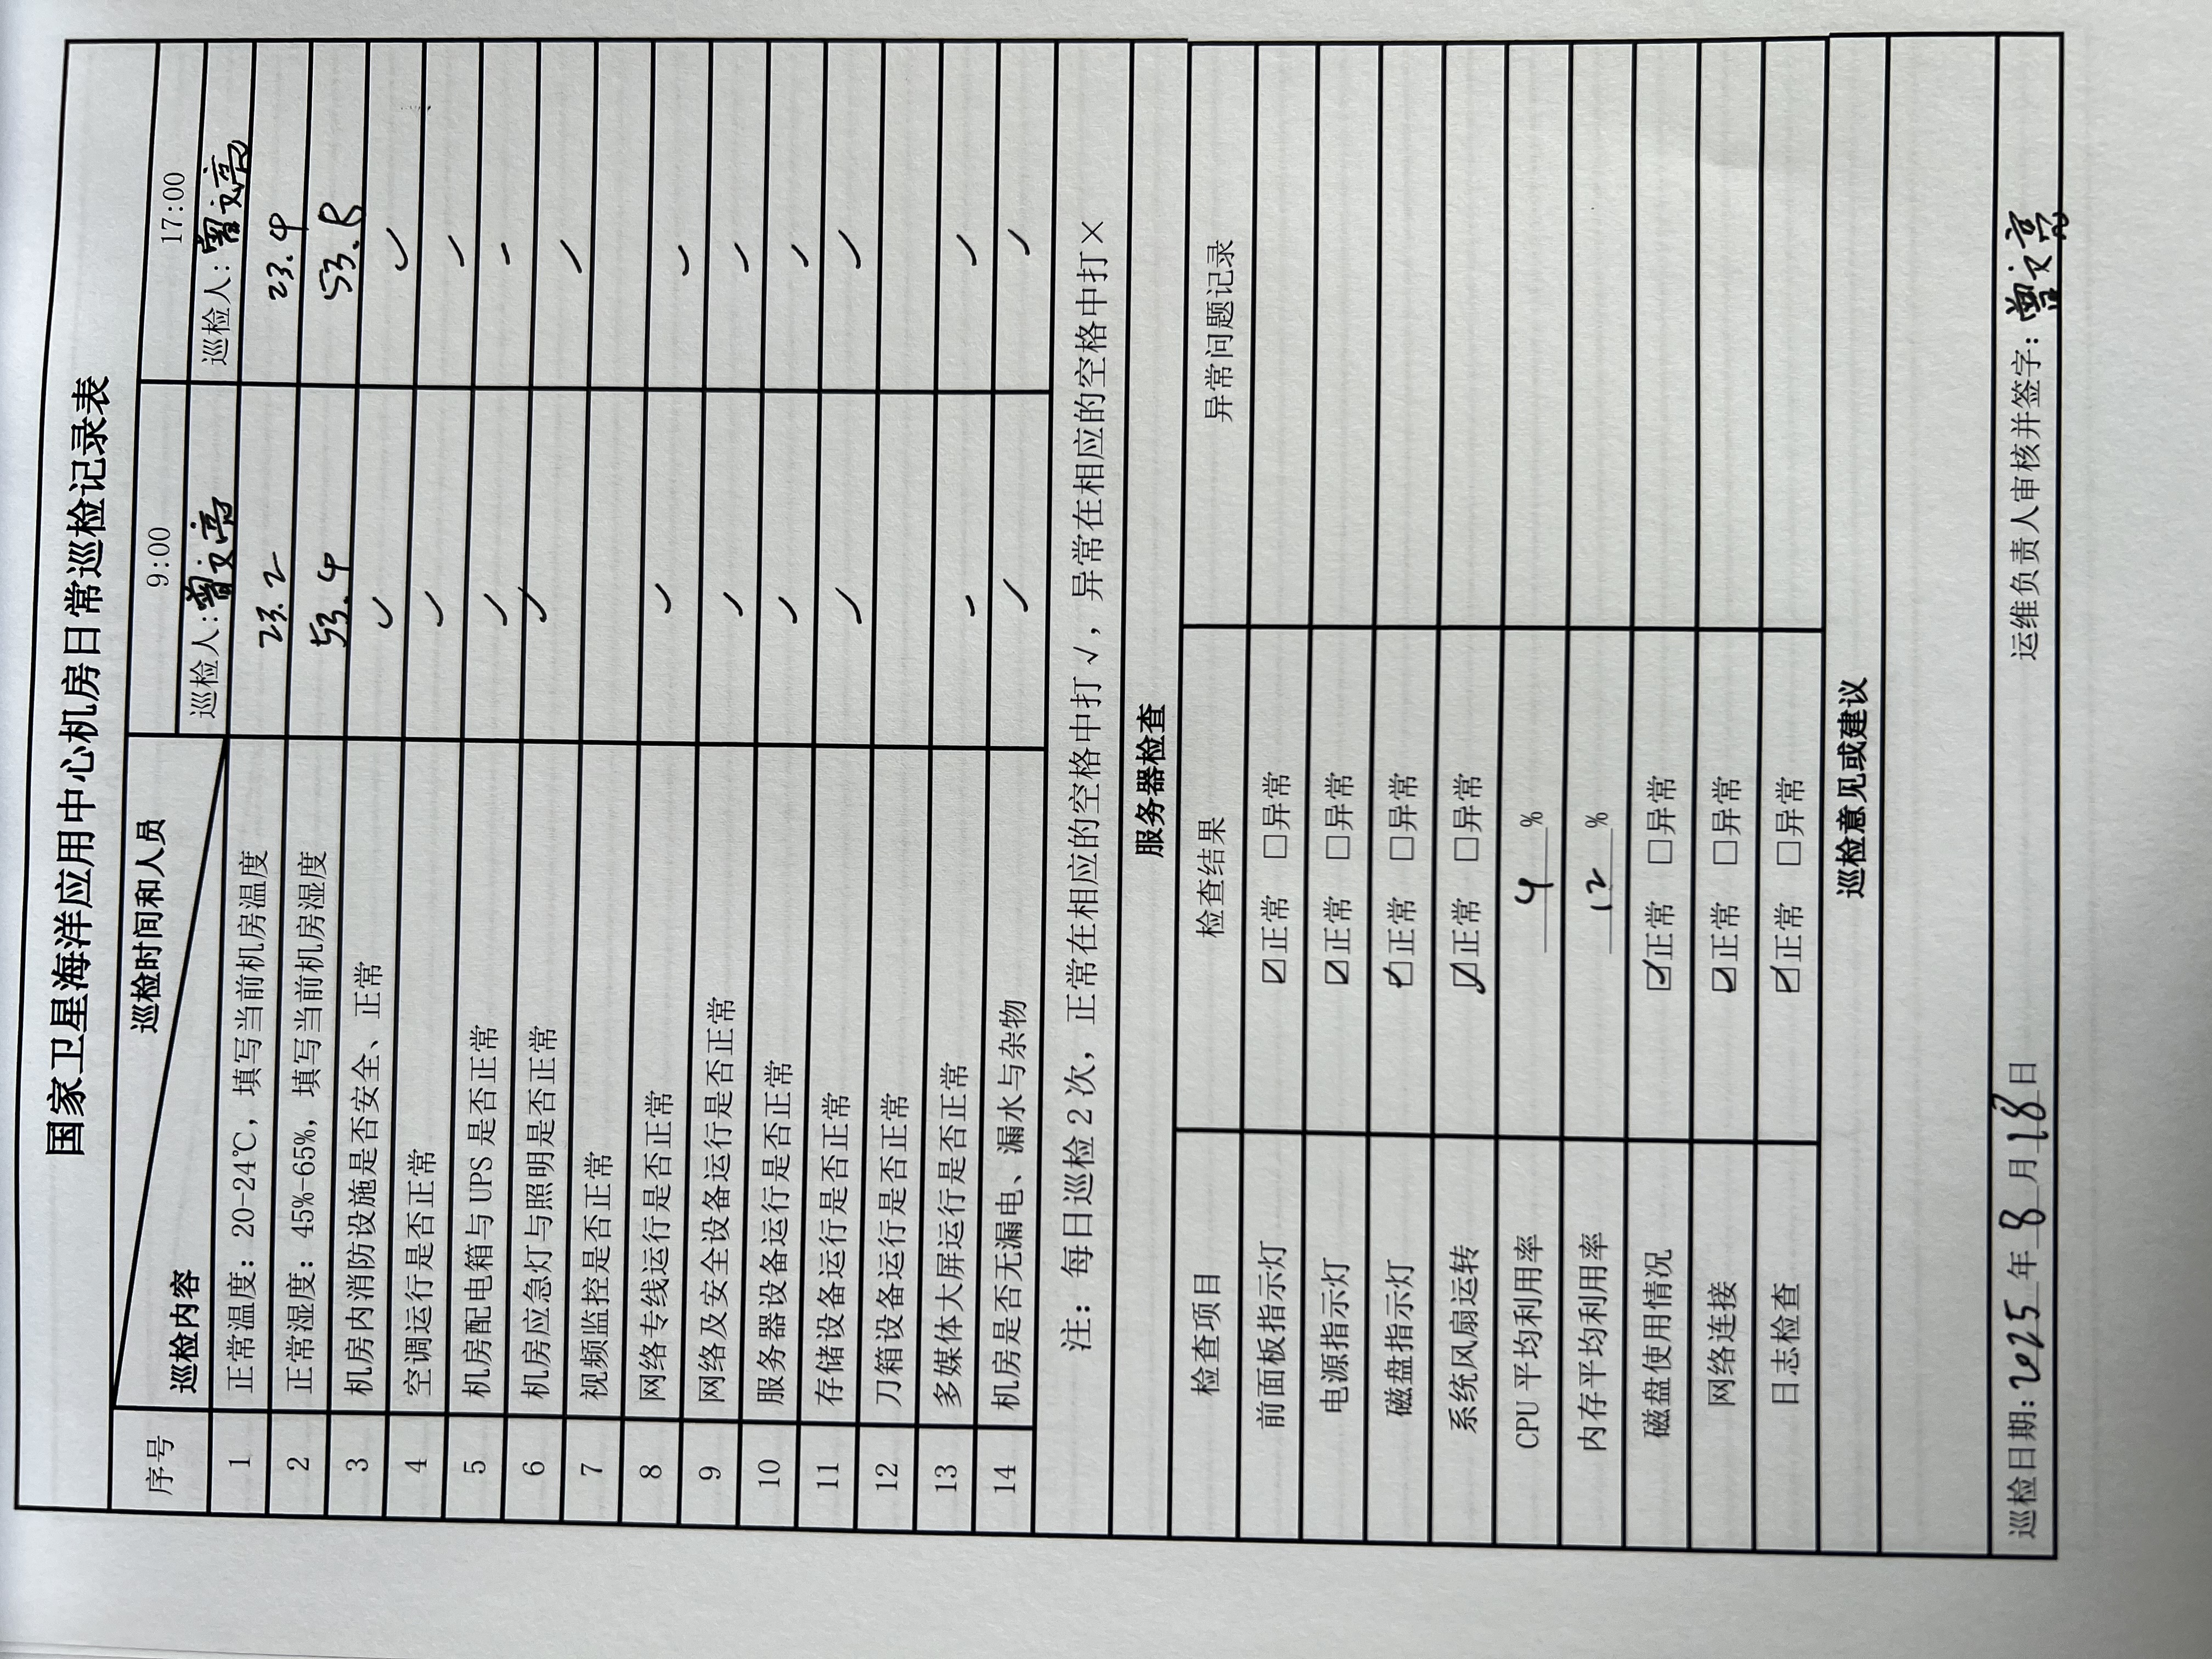 国家卫星海洋应用中心机房日常巡检记录表
序号 巡检内容 巡检时间和人员 9:00 17:00
巡检人:曾文亮 巡检人:曾文亮
1 正常温度：20-24℃，填写当前机房温度 23.2 23.4
2 正常湿度：45%-65%，填写当前机房湿度 53.4 53.8
3 机房内消防设施是否安全、正常 ✓ ✓
4 空调运行是否正常 ✓ ✓
5 机房配电箱与UPS是否正常 ✓ ✓
6 机房应急灯与照明是否正常 ✓ ✓
7 视频监控是否正常
8 网络专线运行是否正常 ✓ ✓
9 网络及安全设备运行是否正常 ✓ ✓
10 服务器设备运行是否正常 ✓ ✓
11 存储设备运行是否正常 ✓ ✓
12 刀箱设备运行是否正常
13 多媒体大屏运行是否正常 ✓ ✓
14 机房是否无漏电、漏水与杂物 ✓ ✓
注：每日巡检2次，正常在相应的空格中打√，异常在相应的空格中打×
服务器检查
检查项目 检查结果 异常问题记录
前面板指示灯 ☑正常 □异常
电源指示灯 ☑正常 □异常
磁盘指示灯 ☑正常 □异常
系统风扇运转 ☑正常 □异常
CPU平均利用率 4 %
内存平均利用率 12 %
磁盘使用情况 ☑正常 □异常
网络连接 ☑正常 □异常
日志检查 ☑正常 □异常
巡检意见或建议
巡检日期：2025年8月18日 运维负责人审核并签字：曾文亮